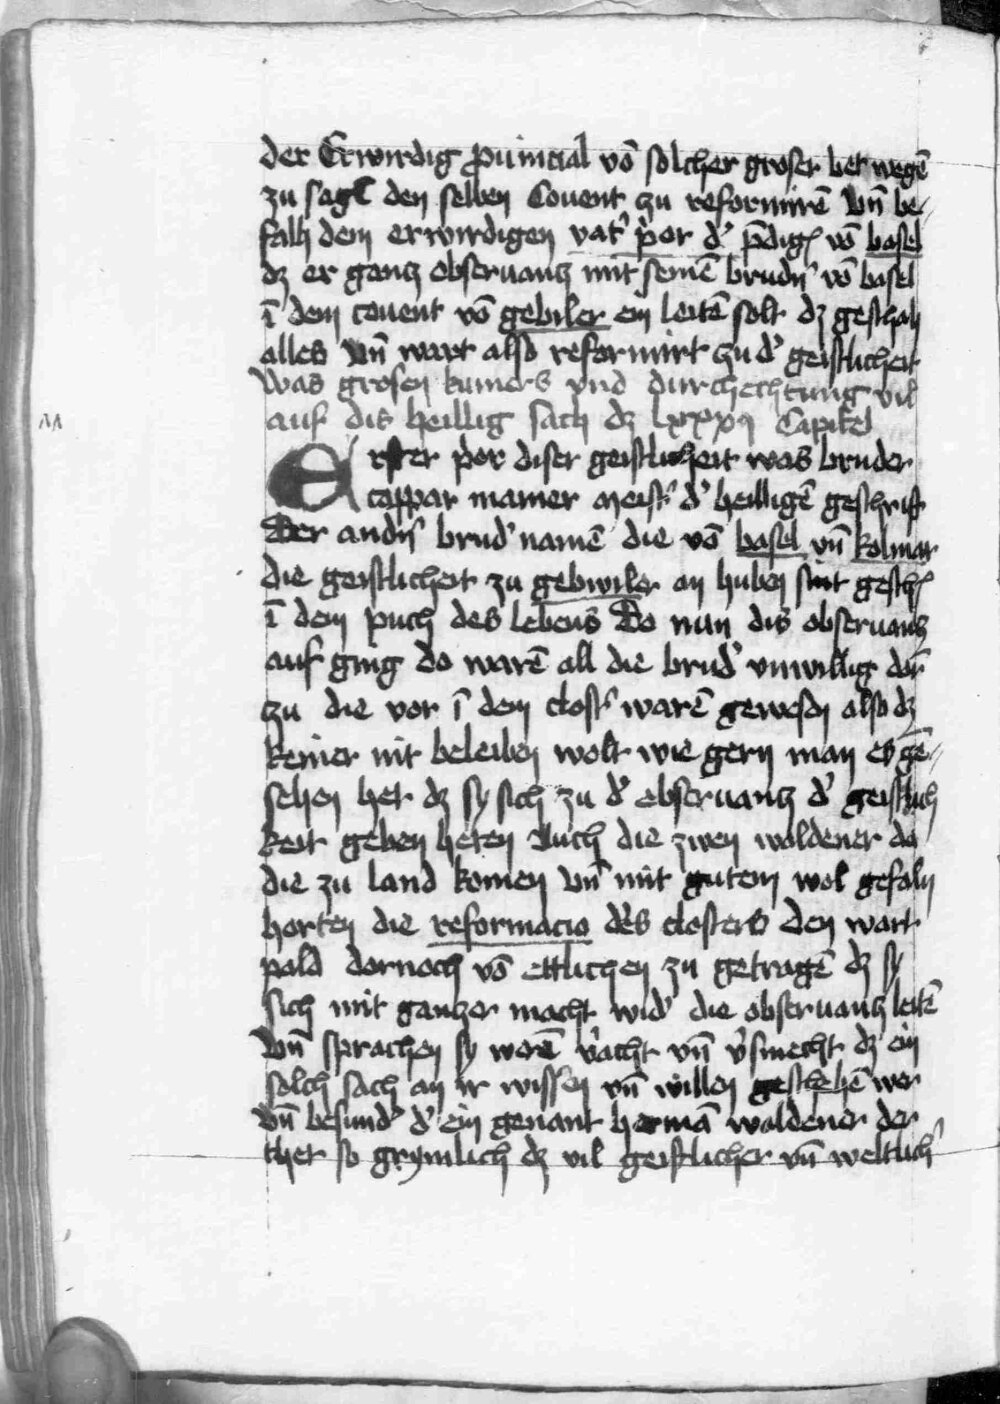 der Erwirdig puincial vō solcher groser bet wegē
zu sagt den selben Couent zu reformirē vn̄ be-
falh dem erwirdigen vat' p̄or d' p̄dig' vō basel
dz er gentz obseruantz mit seinē brudn̄ vō basel
ī dem couent vō gebiler ein leitē solt dz geschah
alles vn̄ wart also reformirt zu d' geistlicheit
Was grosen kumers vnd durchechtung vil
auf dis heillig sach dz lxxxxj Capitel
Erster p̄or diser geistlicheit was bruder
caspar meist' d' heilligē geschrift
Der andn̄ brud' namē die vō basel vn̄ kolmar
die geistlicheit zu gebwiler an huben sint gesch'
ī dem puch des lebens Do nun dis obseruantz
auf ging do warē all die brud' vnwillig dor
zu die vor ī dem clost' warē gewesen also dz
keiner nit beleiben wolt wie gern man es ge-
sehen het dz sy sich zu d' obseruantz d' geistlich
keit geben heten Auch die zwen woldener do
die zu land komen vn̄ mit gutem wol gefaln
horten die reformacio des closters den wart
pald dornoch vō ettlichen zu getragē dz sy
sich mit gantzer macht wid' die obseruantz leitē
vn̄ sprachen sy werē v'acht vn̄ v'smecht dz ein
solch sach an ir wissen vn̄ willen geschehē wer
vn̄ besund' d' ein genant hermā woldener der
thet so grymlich dz vil geistlicher vn̄ weltlich'